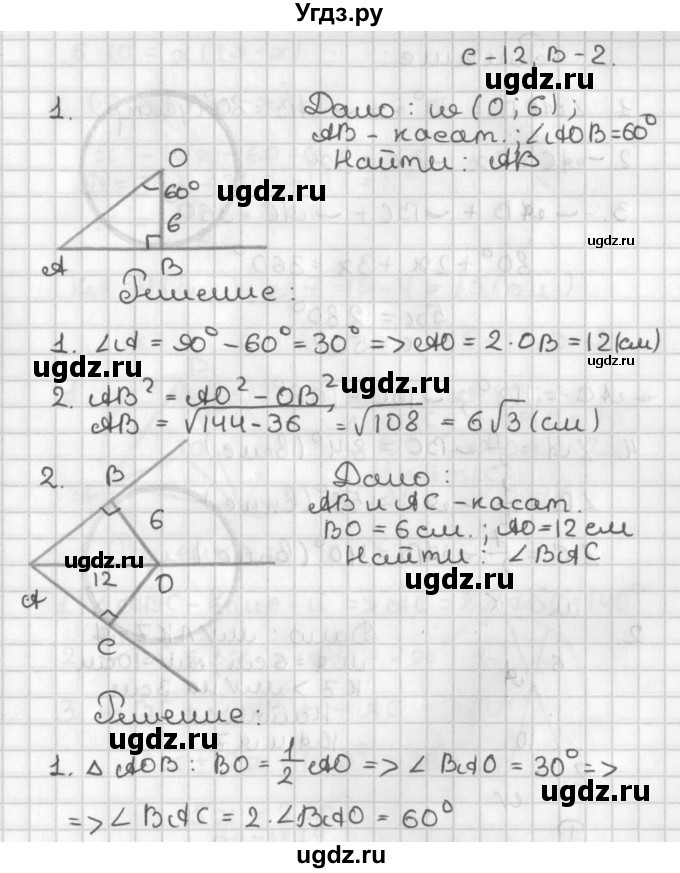 Угдз.ру
С-12, В-2.
ugdz.ru
1.
Дано: w (O; 6);
AB - касат.; ∠AOB=60°
Найти: AB
O
60°
ugdz.ru
6
ugdz.ru
A
B
Решение:
1. ∠A = 90° - 60° = 30° => AO = 2·OB = 12(см)
ugdz.ru
ugdz.ru
2. AB² = AO² - OB²,
ugdz.ru
AB = √144-36 = √108 = 6√3 (см)
2.
B
6
12
O
A
C
ugdz.ru
Дано:
AB и AC - касат.
BO = 6 см.; AO = 12 см
Найти: ∠BAC
ugdz.ru
ugdz.ru
Решение:
ugdz.ru
1. △ AOB: BO = 1/2 AO => ∠ BAO = 30° =>
ugdz.ru
=> ∠ BAC = 2·∠BAO = 60°
ugdz.ru
ugdz.ru